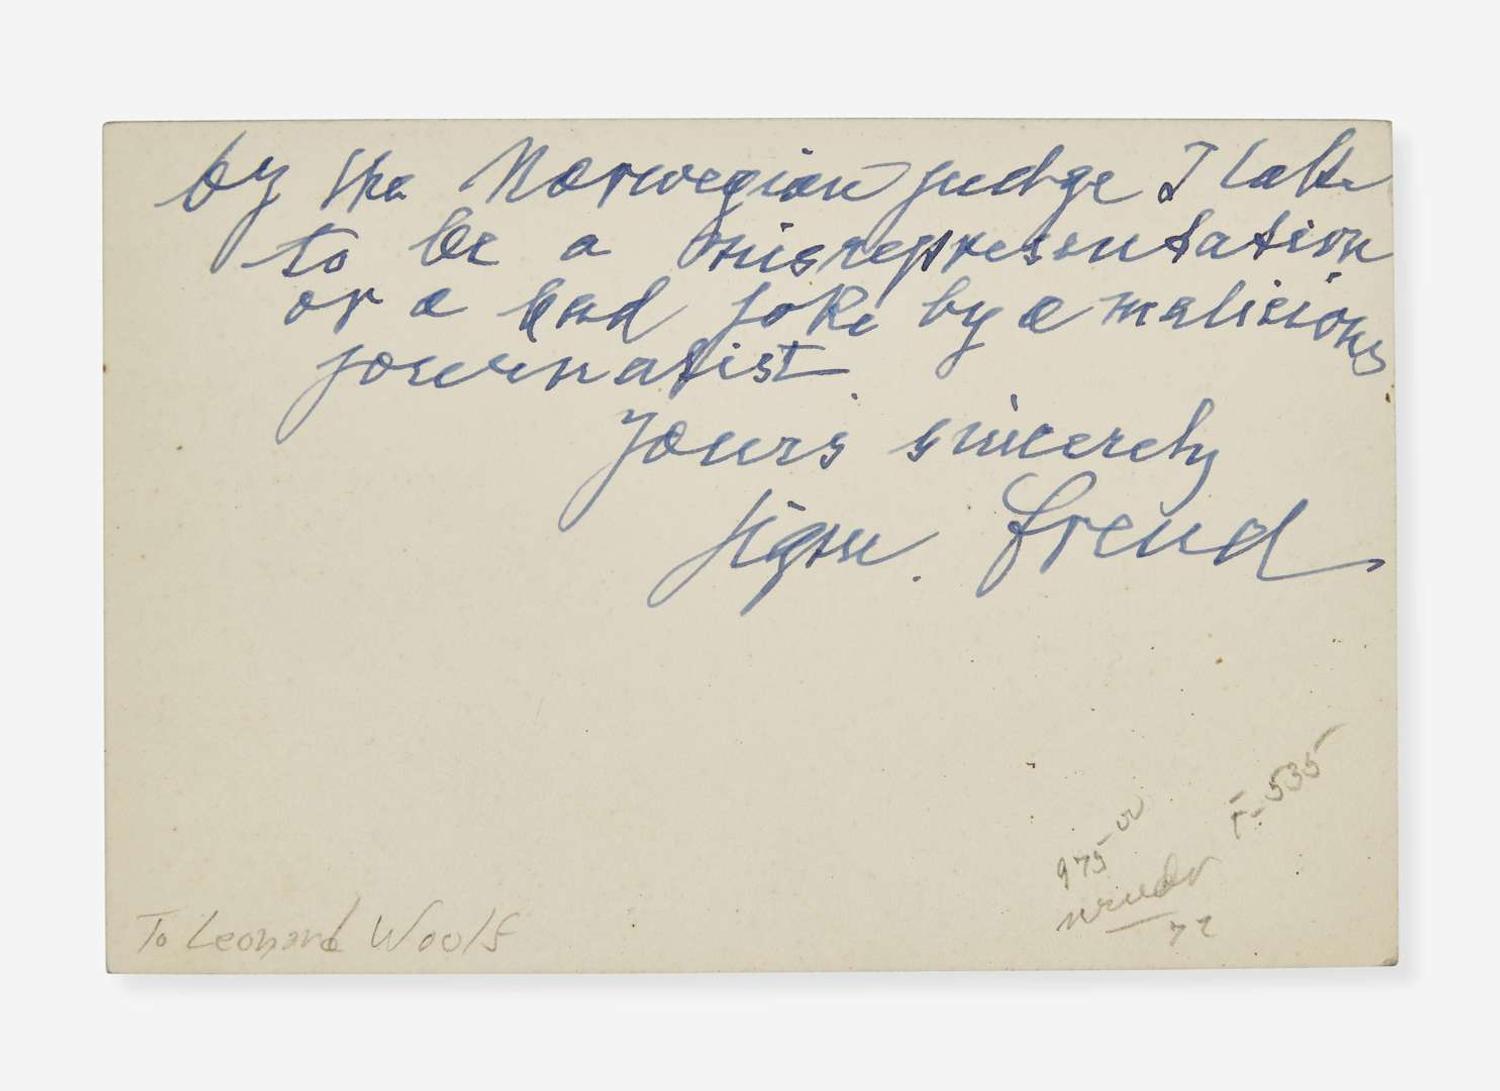 by the Norwegian judge I take
to be a misrepresentation
or a bad joke by a malicious
journalist.
Yours sincerely
Sigm. Freud
975-00
F-535
72
To Leonard Woolf